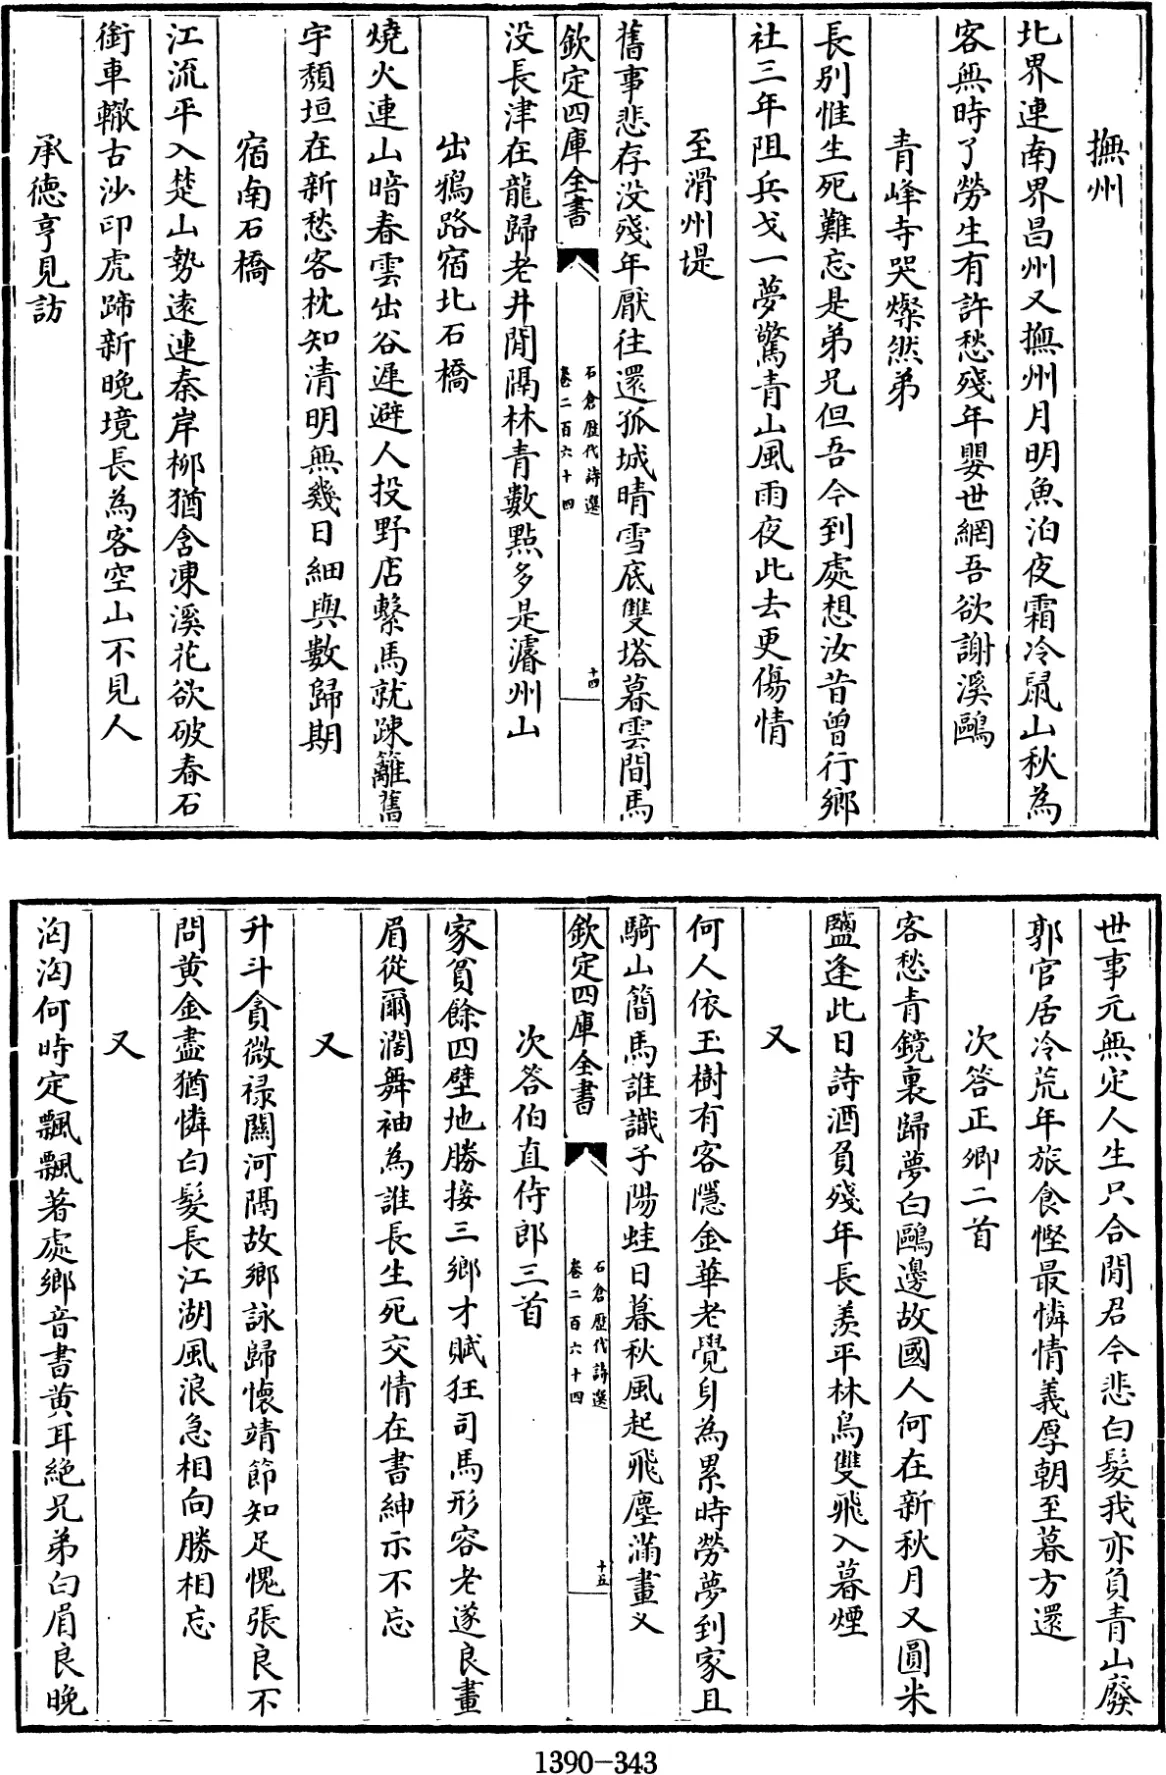 撫州
北界連南界昌州又撫州月明魚泊夜霜冷鼠山秋為
客無時了勞生有許愁殘年嬰世網吾欲謝溪鷗
青峰寺哭燦然弟
長別惟生死難忘是弟兄但吾今到處想汝昔曾行鄉
社三年阻兵戈一夢驚青山風雨夜此去更傷情
至滑州堤
舊事悲存没殘年厭往還孤城晴雪底雙塔暮雲間馬
欽定四庫全書
石倉歷代詩選
卷二百六十四
十四
没長津在龍歸老井閒隔林青數點多是濬州山
出鴉路宿北石橋
燒火連山暗春雲出谷遲避人投野店繫馬就疎籬舊
宇頽垣在新愁客枕知清明無幾日細與數歸期
宿南石橋
江流平入楚山勢遠連秦岸柳猶含凍溪花欲破春石
銜車轍古沙印虎蹄新晩境長為客空山不見人
承德亨見訪
世事元無定人生只合閒君今悲白髮我亦負青山廢
郭官居冷荒年旅食慳最憐情義厚朝至暮方還
次答正卿二首
客愁青鏡裏歸夢白鷗邊故國人何在新秋月又圓米
鹽逢此日詩酒負殘年長羨平林鳥雙飛入暮煙
又
何人依玉樹有客隱金華老覺身為累時勞夢到家且
騎山簡馬誰識子陽蛙日暮秋風起飛塵滿畫叉
欽定四庫全書
石倉歷代詩選
卷二百六十四
十五
次答伯直侍郎三首
家貧餘四壁地勝接三鄉才賦狂司馬形容老遂良畫
眉從爾濶舞袖為誰長生死交情在書紳示不忘
又
升斗貪微禄關河隔故鄉詠歸懷靖節知足愧張良不
問黄金盡猶憐白髮長江湖風浪急相向勝相忘
又
洶洶何時定飄飄著處鄉音書黄耳絶兄弟白眉良晩
1390-343